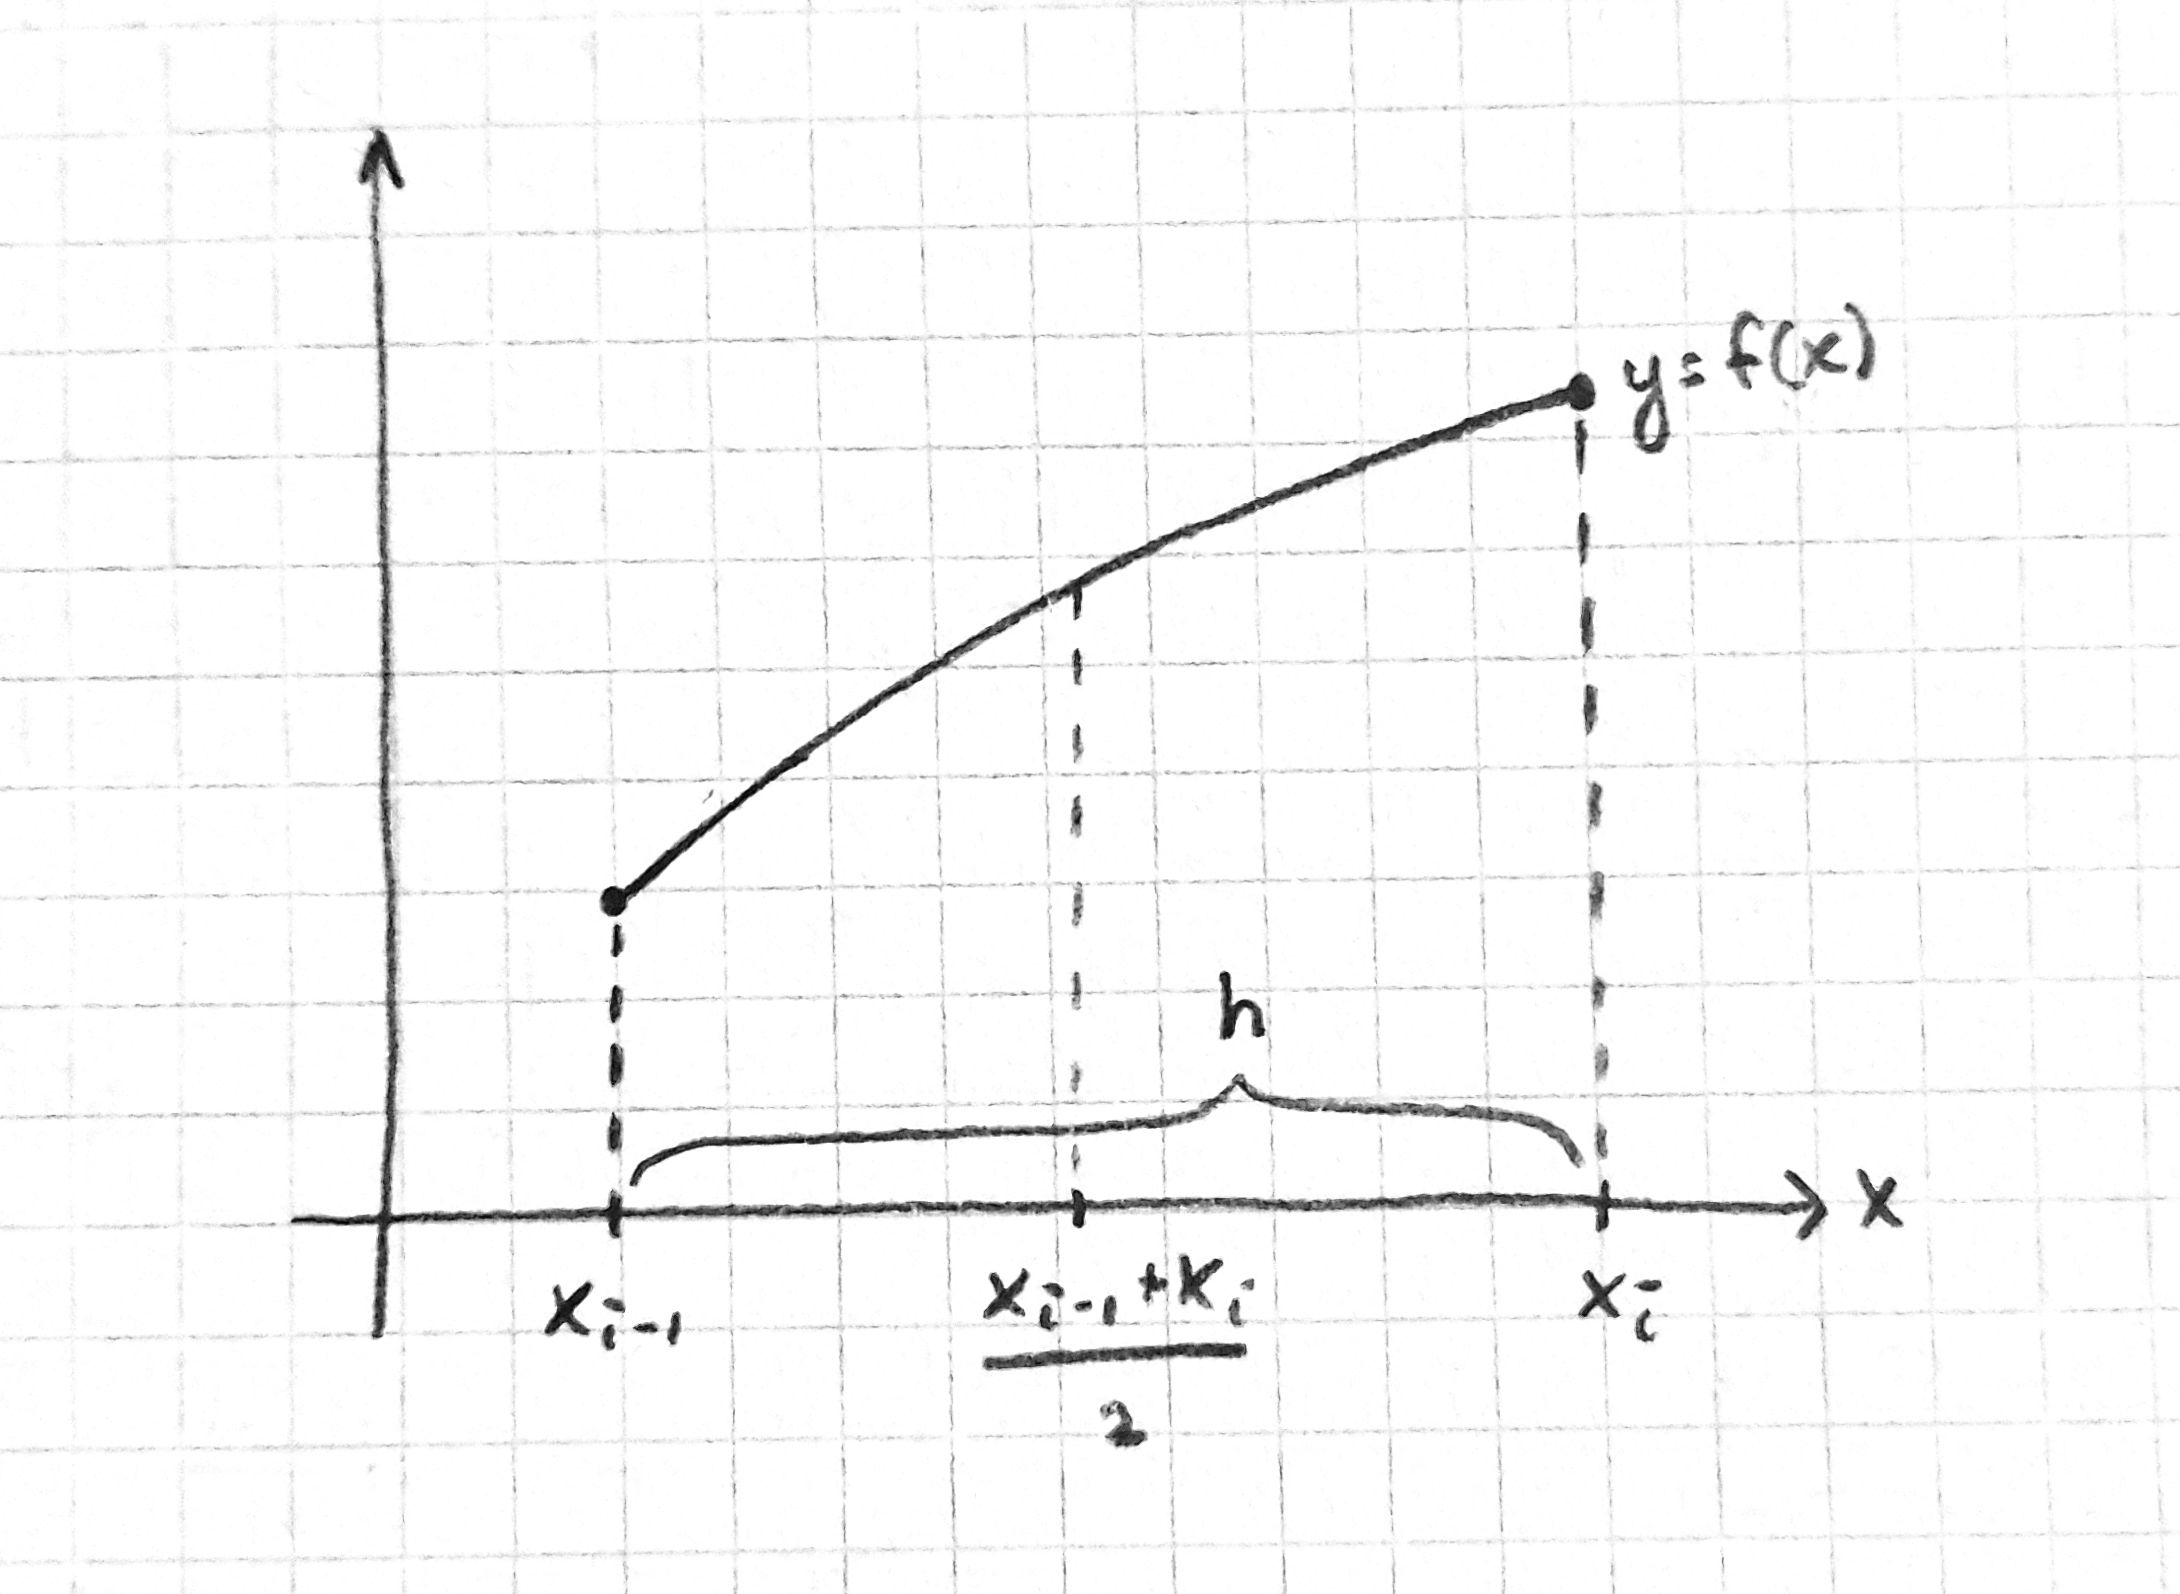 y=f(x)
h
x
x_{i-1}
x_{i-1}+x_i
2
x_i